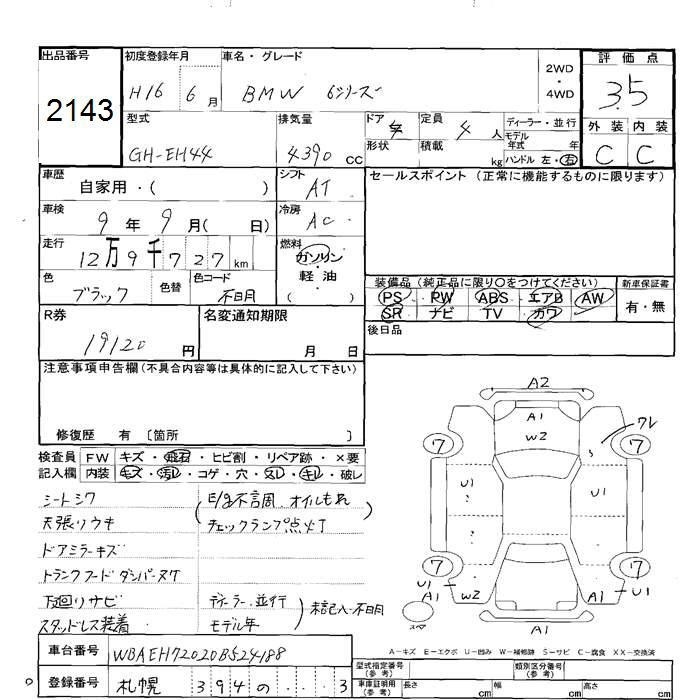 出品番号 初度登録年月 車名・グレード 評価点
2143 H16 6月 BMW 6シリーズ 2WD・4WD 3.5
型式 排気量 ドア 定員 ディーラー・並行 外装 内装
GH-EH44 4390 cc 4 人 モデル年式 年 C C
形状 積載 kg ハンドル 左・右
車歴 シフト セールスポイント (正常に機能するものに限ります)
自家用・( ) AT
車検 冷房
9年 9月( 日) AC
走行 燃料
12万9千727km ガソリン
軽油
( )
色 色替 色コード 装備品 (純正品に限り○をつけてください) 新車保証書
ブラック 不明 PS PW ABS エアB AW 有・無
SR ナビ TV カワ
R券 名変通知期限 後日品
19120円 月 日
注意事項申告欄(不具合内容等は具体的に記入して下さい)
修復歴 有 〔箇所 〕
検査員 FW キズ・飛石・ヒビ割・リペア跡・×要
記入欄 内装 キズ・汚レ・コゲ・穴・スレ・キレ・破レ
シートシワ E/g不調 オイルもれ
天張リウキ チェックランプ点灯
ドアミラーキズ
トランクフードダンパーヌケ
下回リサビ ディーラー,並行
スタッドレス装着 モデル年 未記入・不明
A2
A1
W2
ワレ
7 7
U1 U1
7 7
U1 A1 W2 A1 U1
スペア A1
A-キズ E-エクボ U-凹み W-補修跡 S-サビ C-腐食 XX-交換済
車台番号 WBAEH72020B524188
登録番号 札幌 394の...3
型式指定番号(参考) 類別区分番号(参考)
車庫証明用(参考) 長さ cm 幅 cm 高さ cm